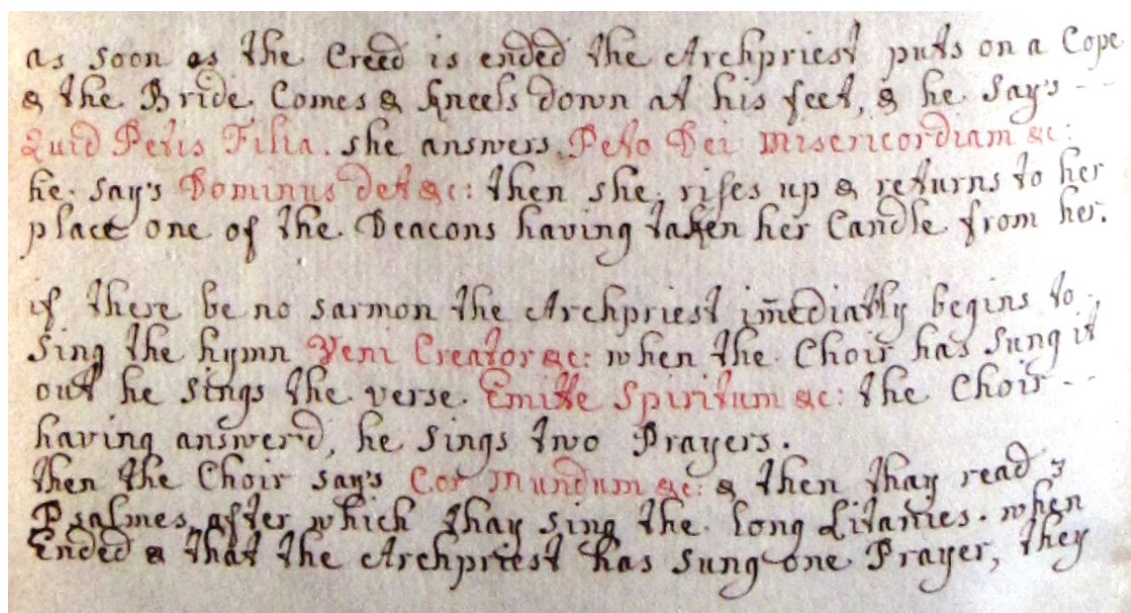 as soon as the Creed is ended the Archpriest puts on a Cope
& the Bride Comes & kneels down at his feet, & he say's - -
Quid Petis Filia. she answers Peto Dei Misericordiam &c:
he say's Dominus det &c: then she rises up & returns to her
place one of the Deacons having taken her Candle from her.
if there be no sarmon the Archpriest im̄ediatly begins to
sing the hymn Veni Creator &c: when the Choir has sung it
out he sings the verse Emitte Spiritum &c: the Choir - -
having answer'd, he sings two Prayers.
then the Choir say's Cor Mundum &c: & then thay read 3
Psalmes, after which thay sing the long Litanies. when
Ended & that the Archpriest has sung one Prayer, they